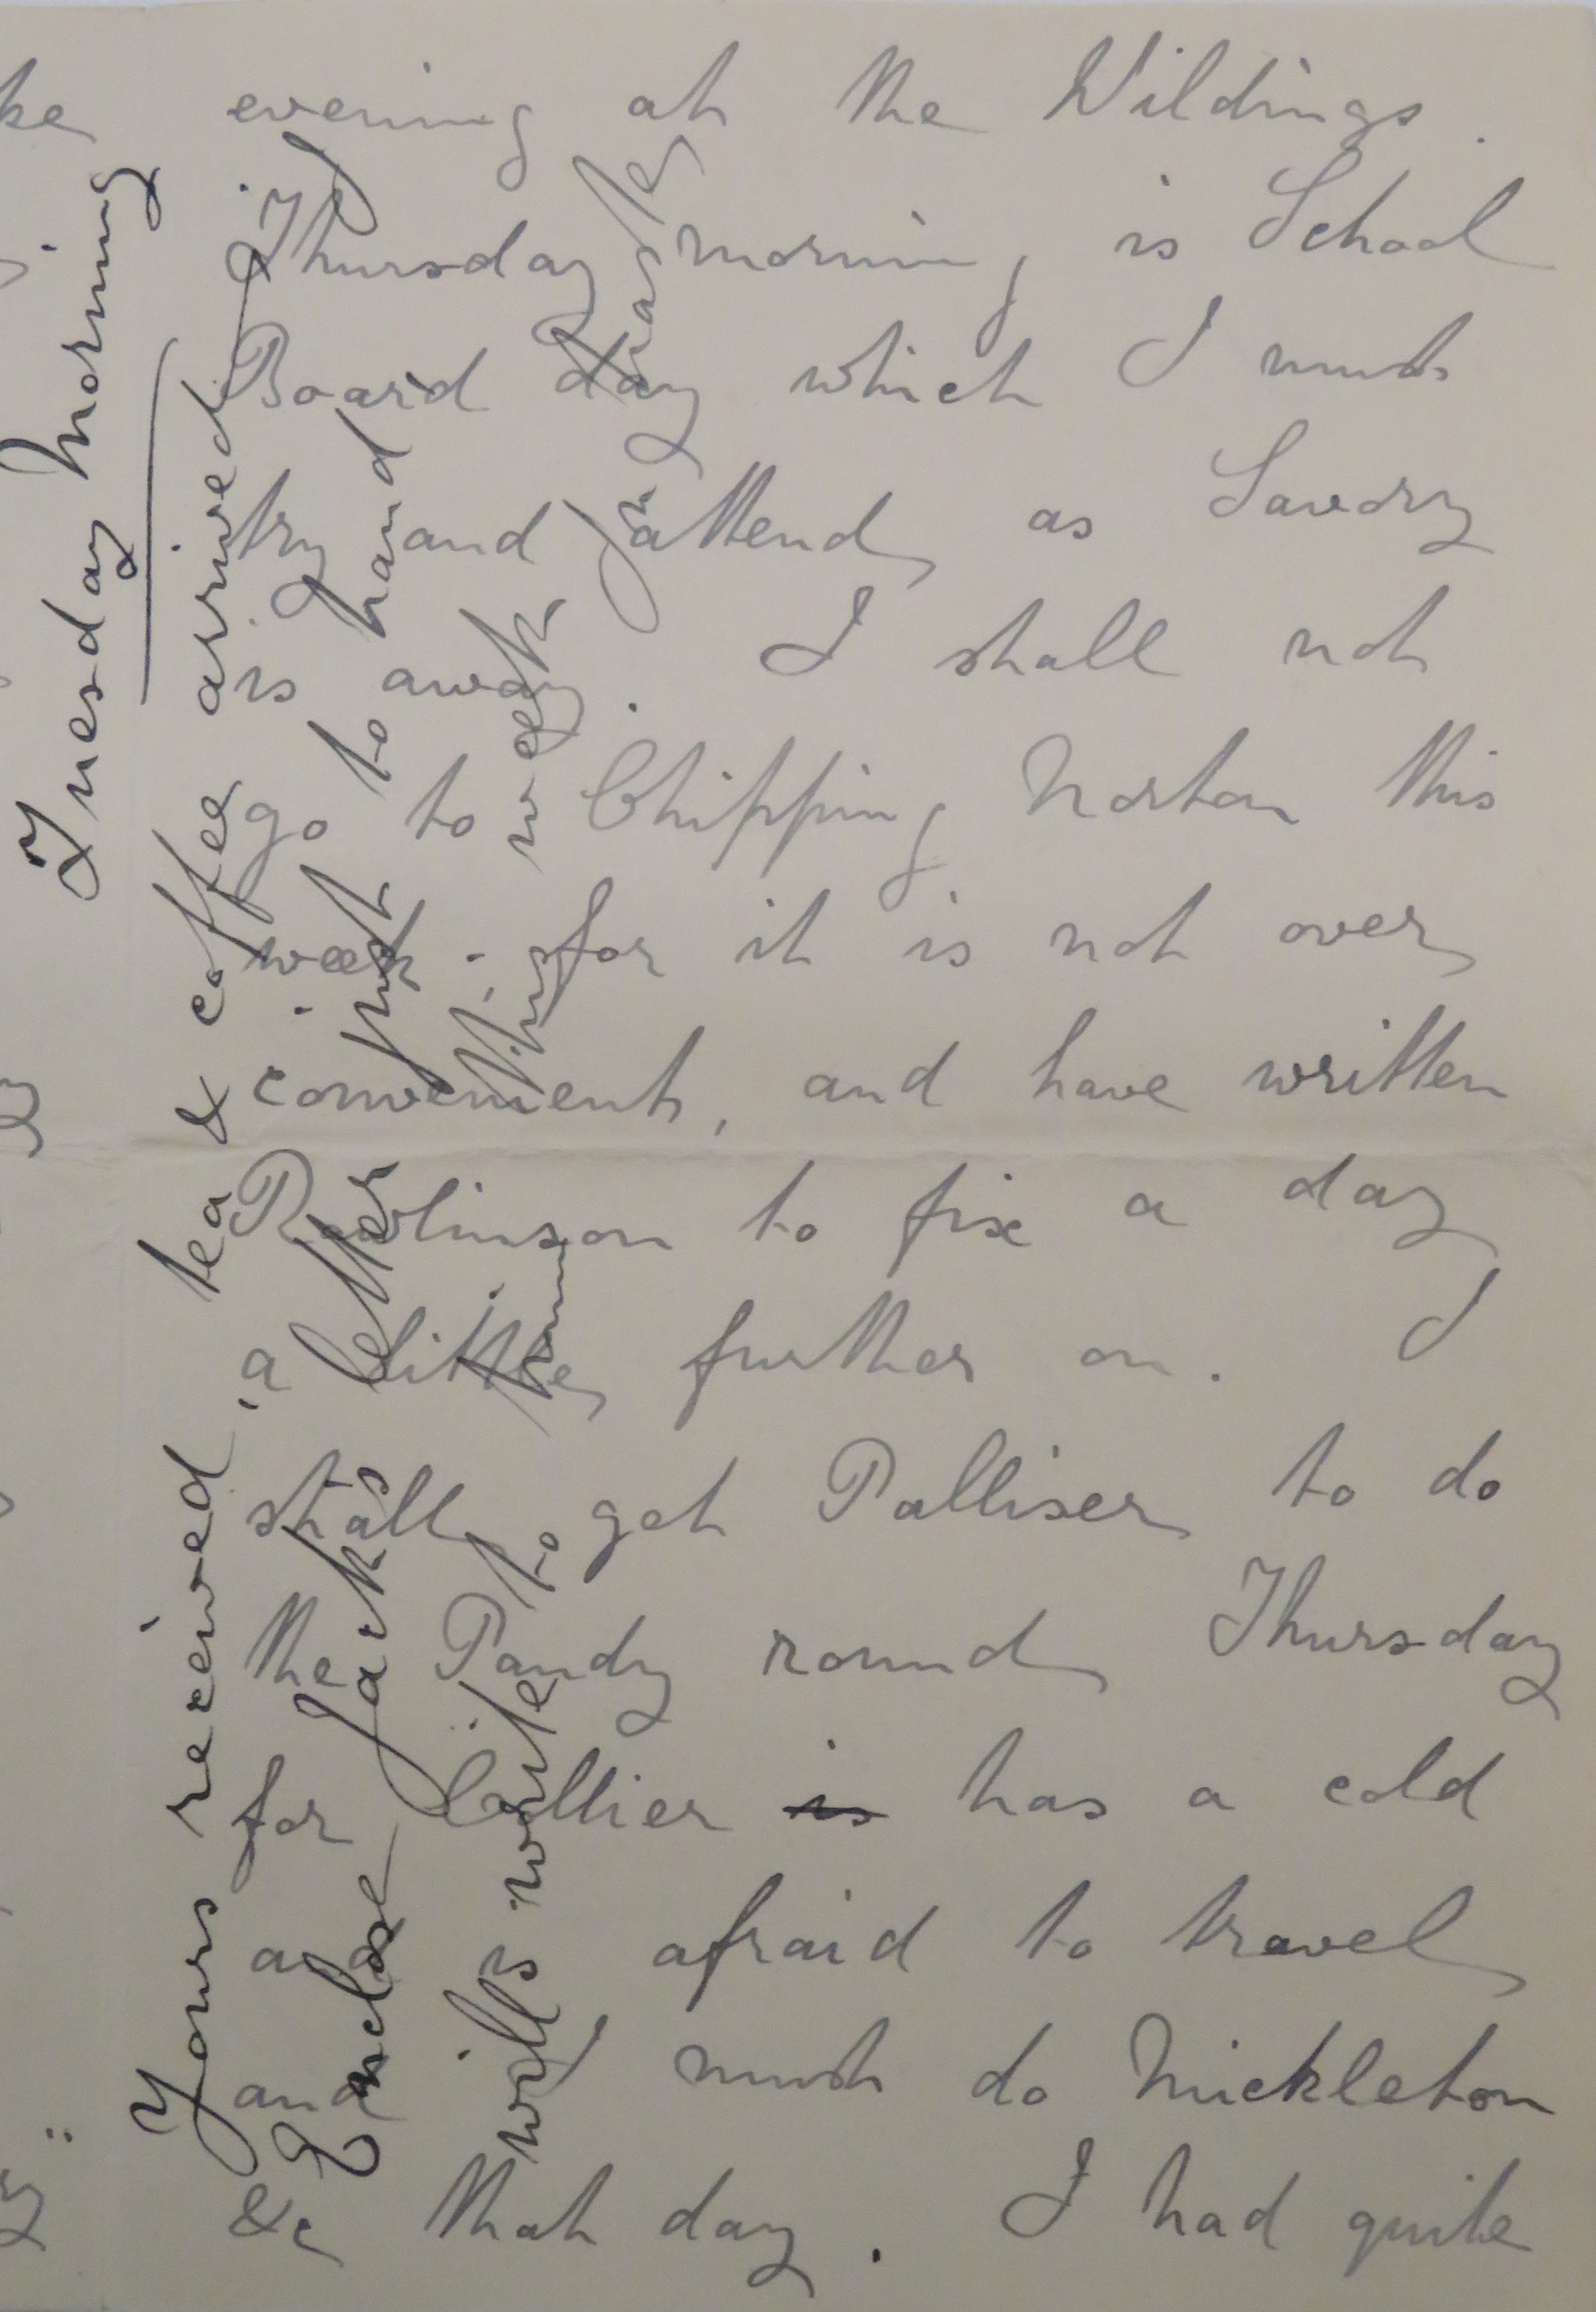 evening at the Wildings.
Thursday morning is School
Board day which I must
try and attend as Savory
is away. I shall not
go to Chipping Norton this
week - for it is not over
convenient, and have written
Rawlinson to fix a day
a little further on. I
shall get Palliser to do
the Pandy round Thursday
for Collier is has a cold
is afraid to travel
and I must do Mickleton
&c that day. I had quite
Tuesday Morning
Yours received, tea & coffee arrived I
Enclose Jack's letter just to hand
will write to him this week
In haste